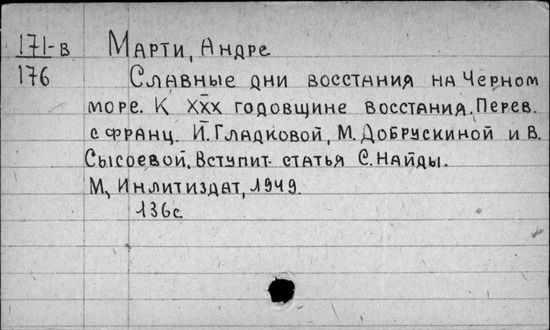 171-в Марти, Андре
176 Славные дни восстания на Черном
море. К XXX годовщине восстания. Перев.
с франц. И. Гладковой, М. Добрускиной и В.
Сысоевой. Вступит. статья С. Найды.
М., Инлитиздат, 1949.
136с.